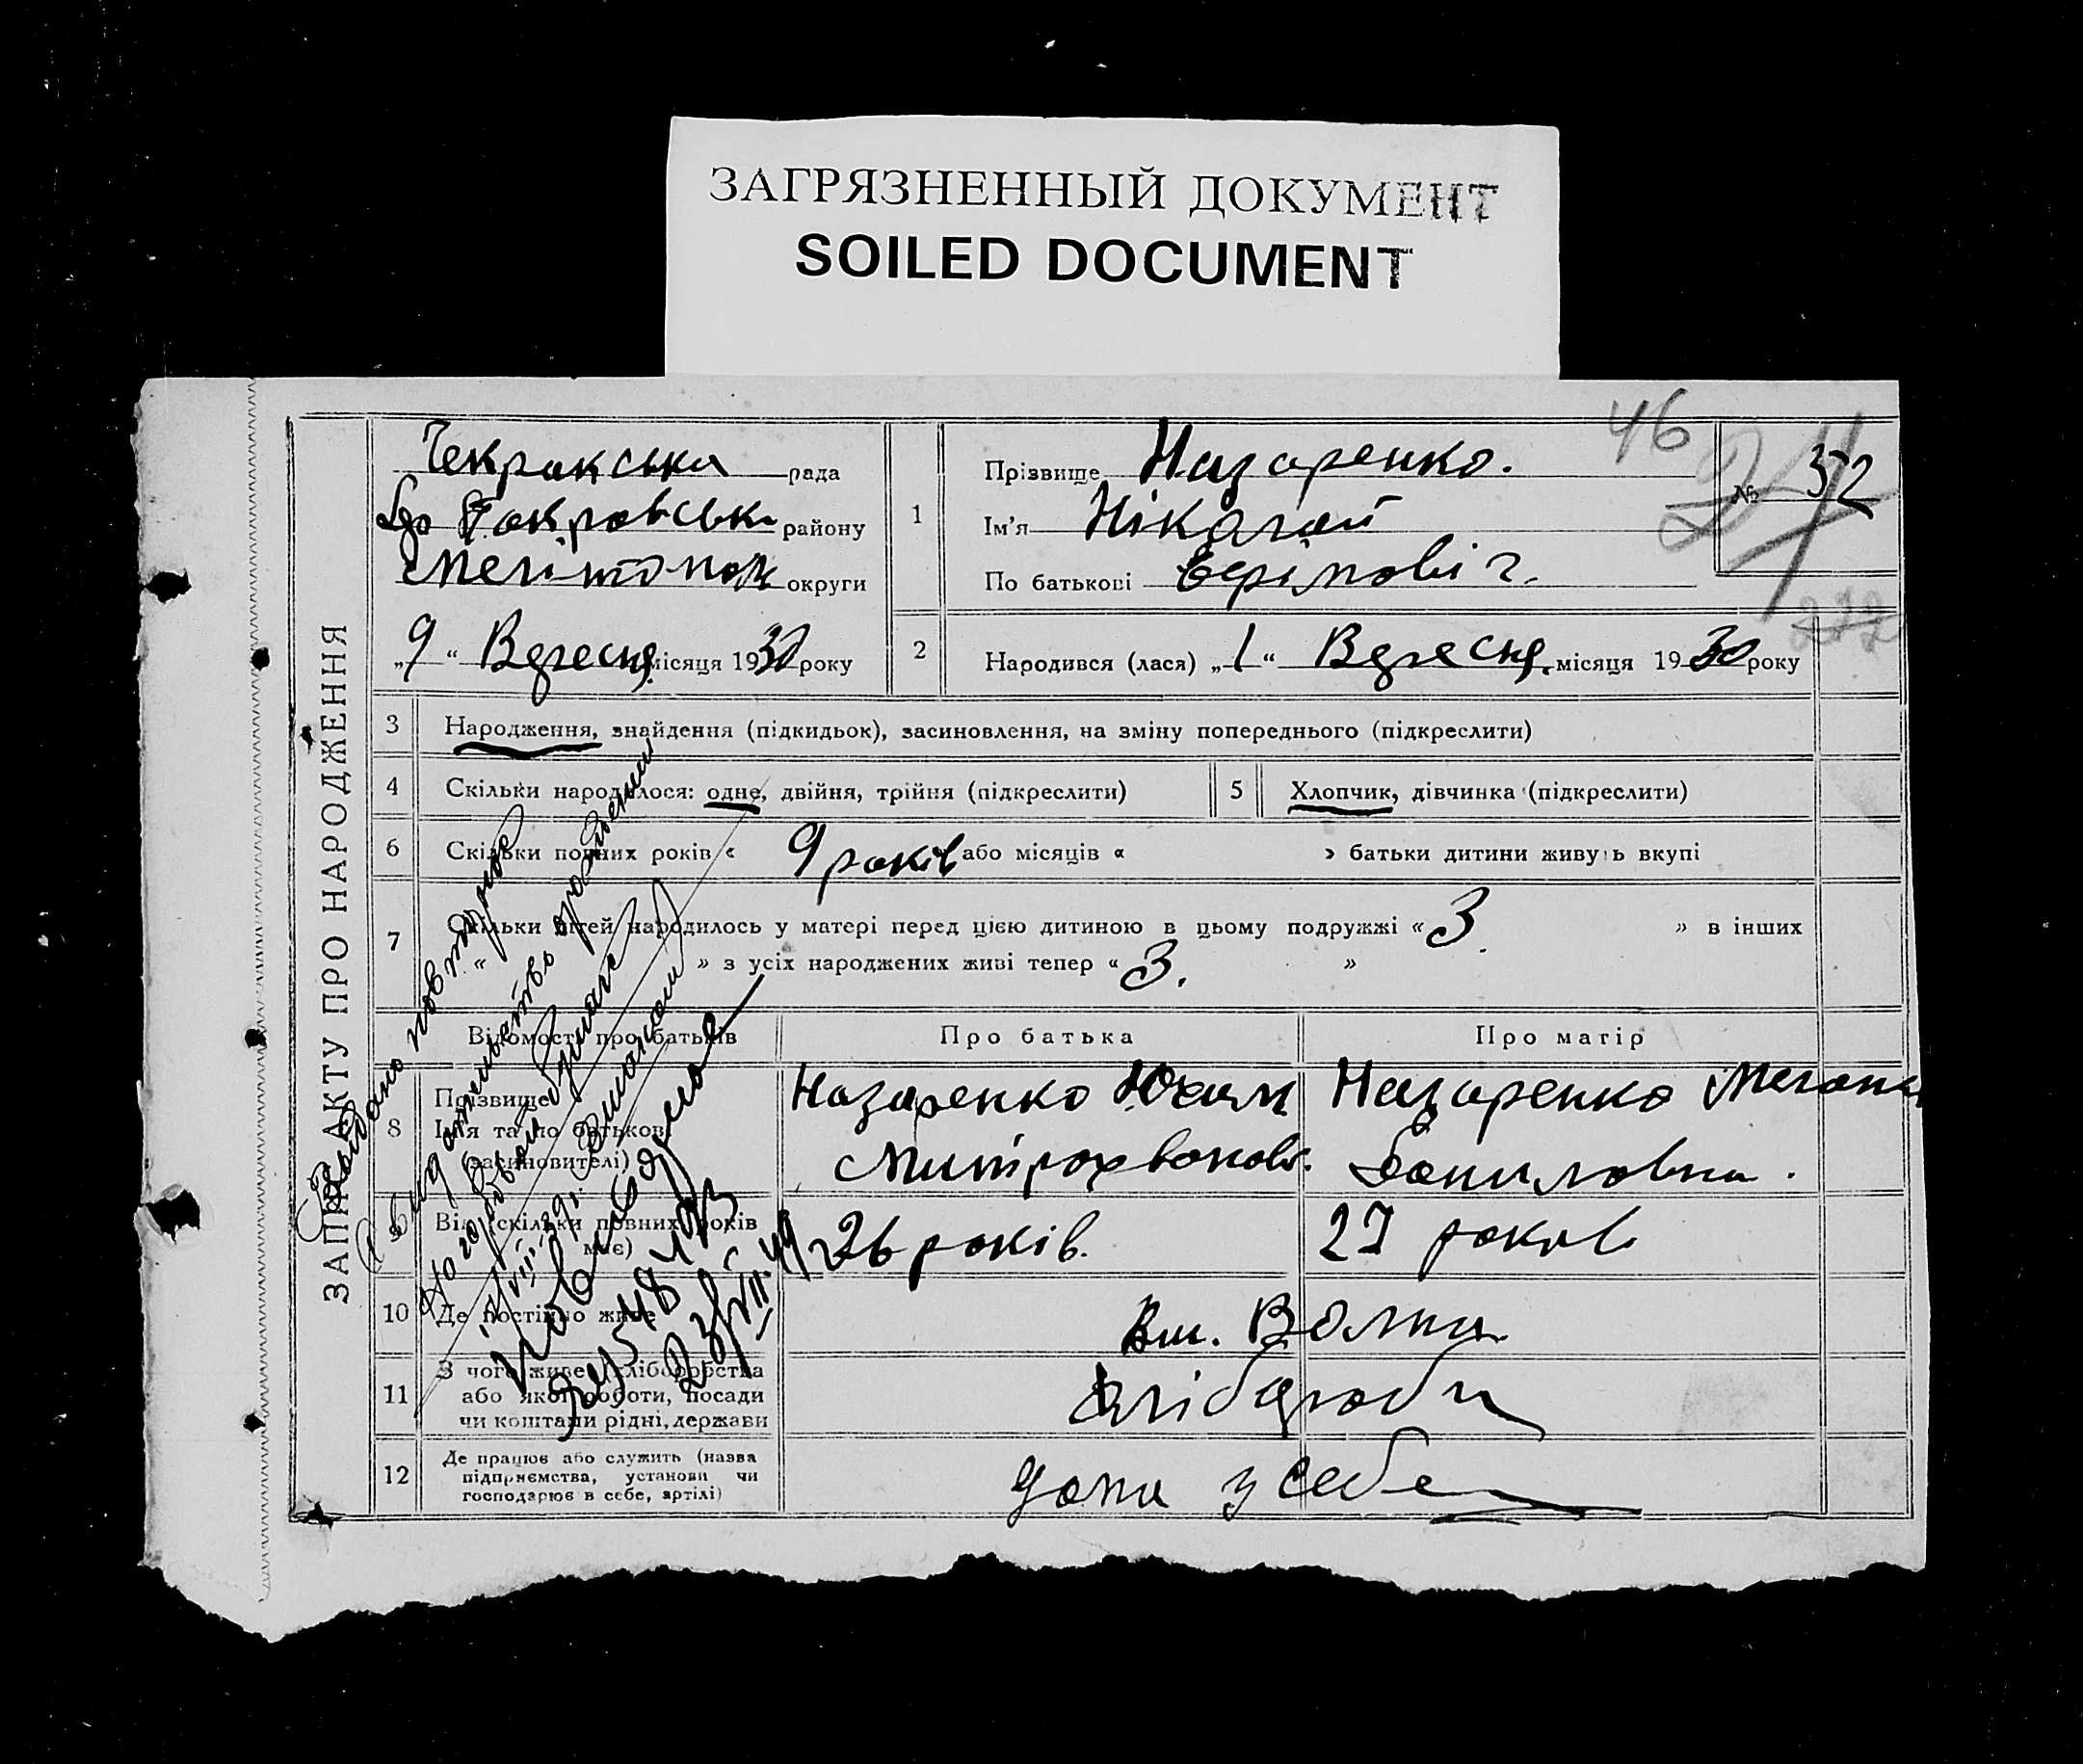 ЗАГРЯЗНЕННЫЙ ДОКУМЕНТ
SOILED DOCUMENT
ЗАПИС АКТУ ПРО НАРОДЖЕННЯ
Чекракська рада
Покровськ району
Мелітопол округи
„9“ Вересня місяця 1930 року
46
№ 372
232
1
Прізвище Назаренко.
Ім'я Ніколай
По батькові Єфімовіч.
2 Народився (лася) „1“ Вересня місяця 1930 року
3 Народження, знайдення (підкидьок), засиновлення, на зміну попереднього (підкреслити)
4 Скільки народилося: одне, двійня, трійня (підкреслити)
5 Хлопчик, дівчинка (підкреслити)
6 Скільки повних років « 9 років або місяців « » батьки дитини живуть вкупі
7 Скільки дітей народилось у матері перед цією дитиною в цьому подружжі « 3. » в інших
« » з усіх народжених живі тепер « 3. »
Відомості про батьків Про батька Про матір
8 Прізвище Назаренко Юхим Назаренко Мелання
Ім'я та по батькові Митрохванов. Даниловна.
(засиновителі)
9 Вік (скільки повних років 26 років. 27 років
має)
10 Де постійно живе Вш. Волна
11 З чого живе (хліборобства
або якої роботи, посади хлібароби
чи коштами рідні, держави
12 Де працює або служить (назва
підприємства, установи чи дома у себе
господарює в себе, артілі)
повторное